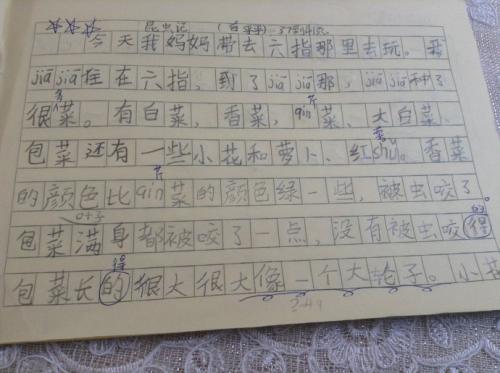 昆虫记
今天我妈妈带去六指那里去玩。我
jiā jiā住在六指，到了jiā jiā那，jiā jiā种了
很多菜。有白菜，香菜，qin芹菜、大白菜、
包菜还有一些小花和萝卜、红shǔ。香菜
的颜色比qin芹菜的颜色绿一些，被虫咬了。
包菜满身都被咬了一点，没有被虫咬得的
包菜长的得很大很大像一个大轮子。小